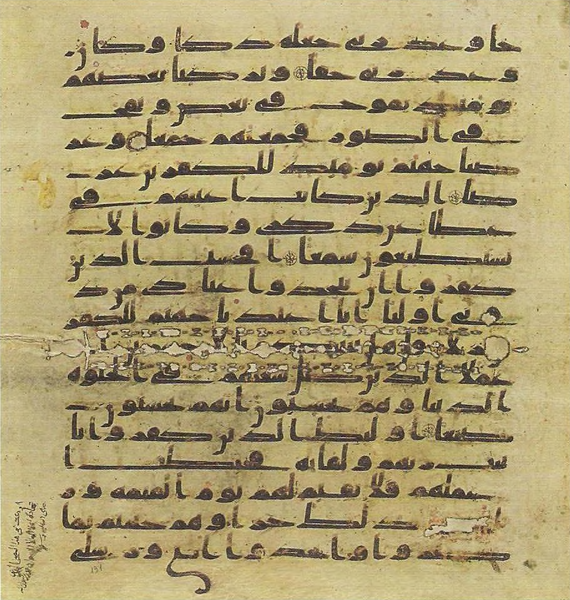 جا وعد ربي جعله دكا وكان
وعد ربي حقا وتركنا بعضهم
يومئذ يموج في بعض ونفخ
في الصور فجمعنهم جمعا وعر
ضنا جهنم يومئذ للكفرين عر
ضا الذين كانت اعينهم في
غطا عن ذكري وكانوا لا
يستطيعون سمعا افحسب الذين
كفروا ان يتخذوا عبادي من د
وني اوليا انا اعتدنا جهنم للكفر
ين نزلا قل هل ننبئكم بالاخسرين ا
عملا الذين ضل سعيهم في الحيوه
الدنيا وهم يحسبون انهم يحسنون
صنعا اولئك الذين كفروا بايا
ت ربهم ولقايه فحبطت ا
عملهم فلا نقيم لهم يوم القيمه وز
ذلك جزاوهم جهنم بما
كفروا واتخذوا ايتي ورسلي